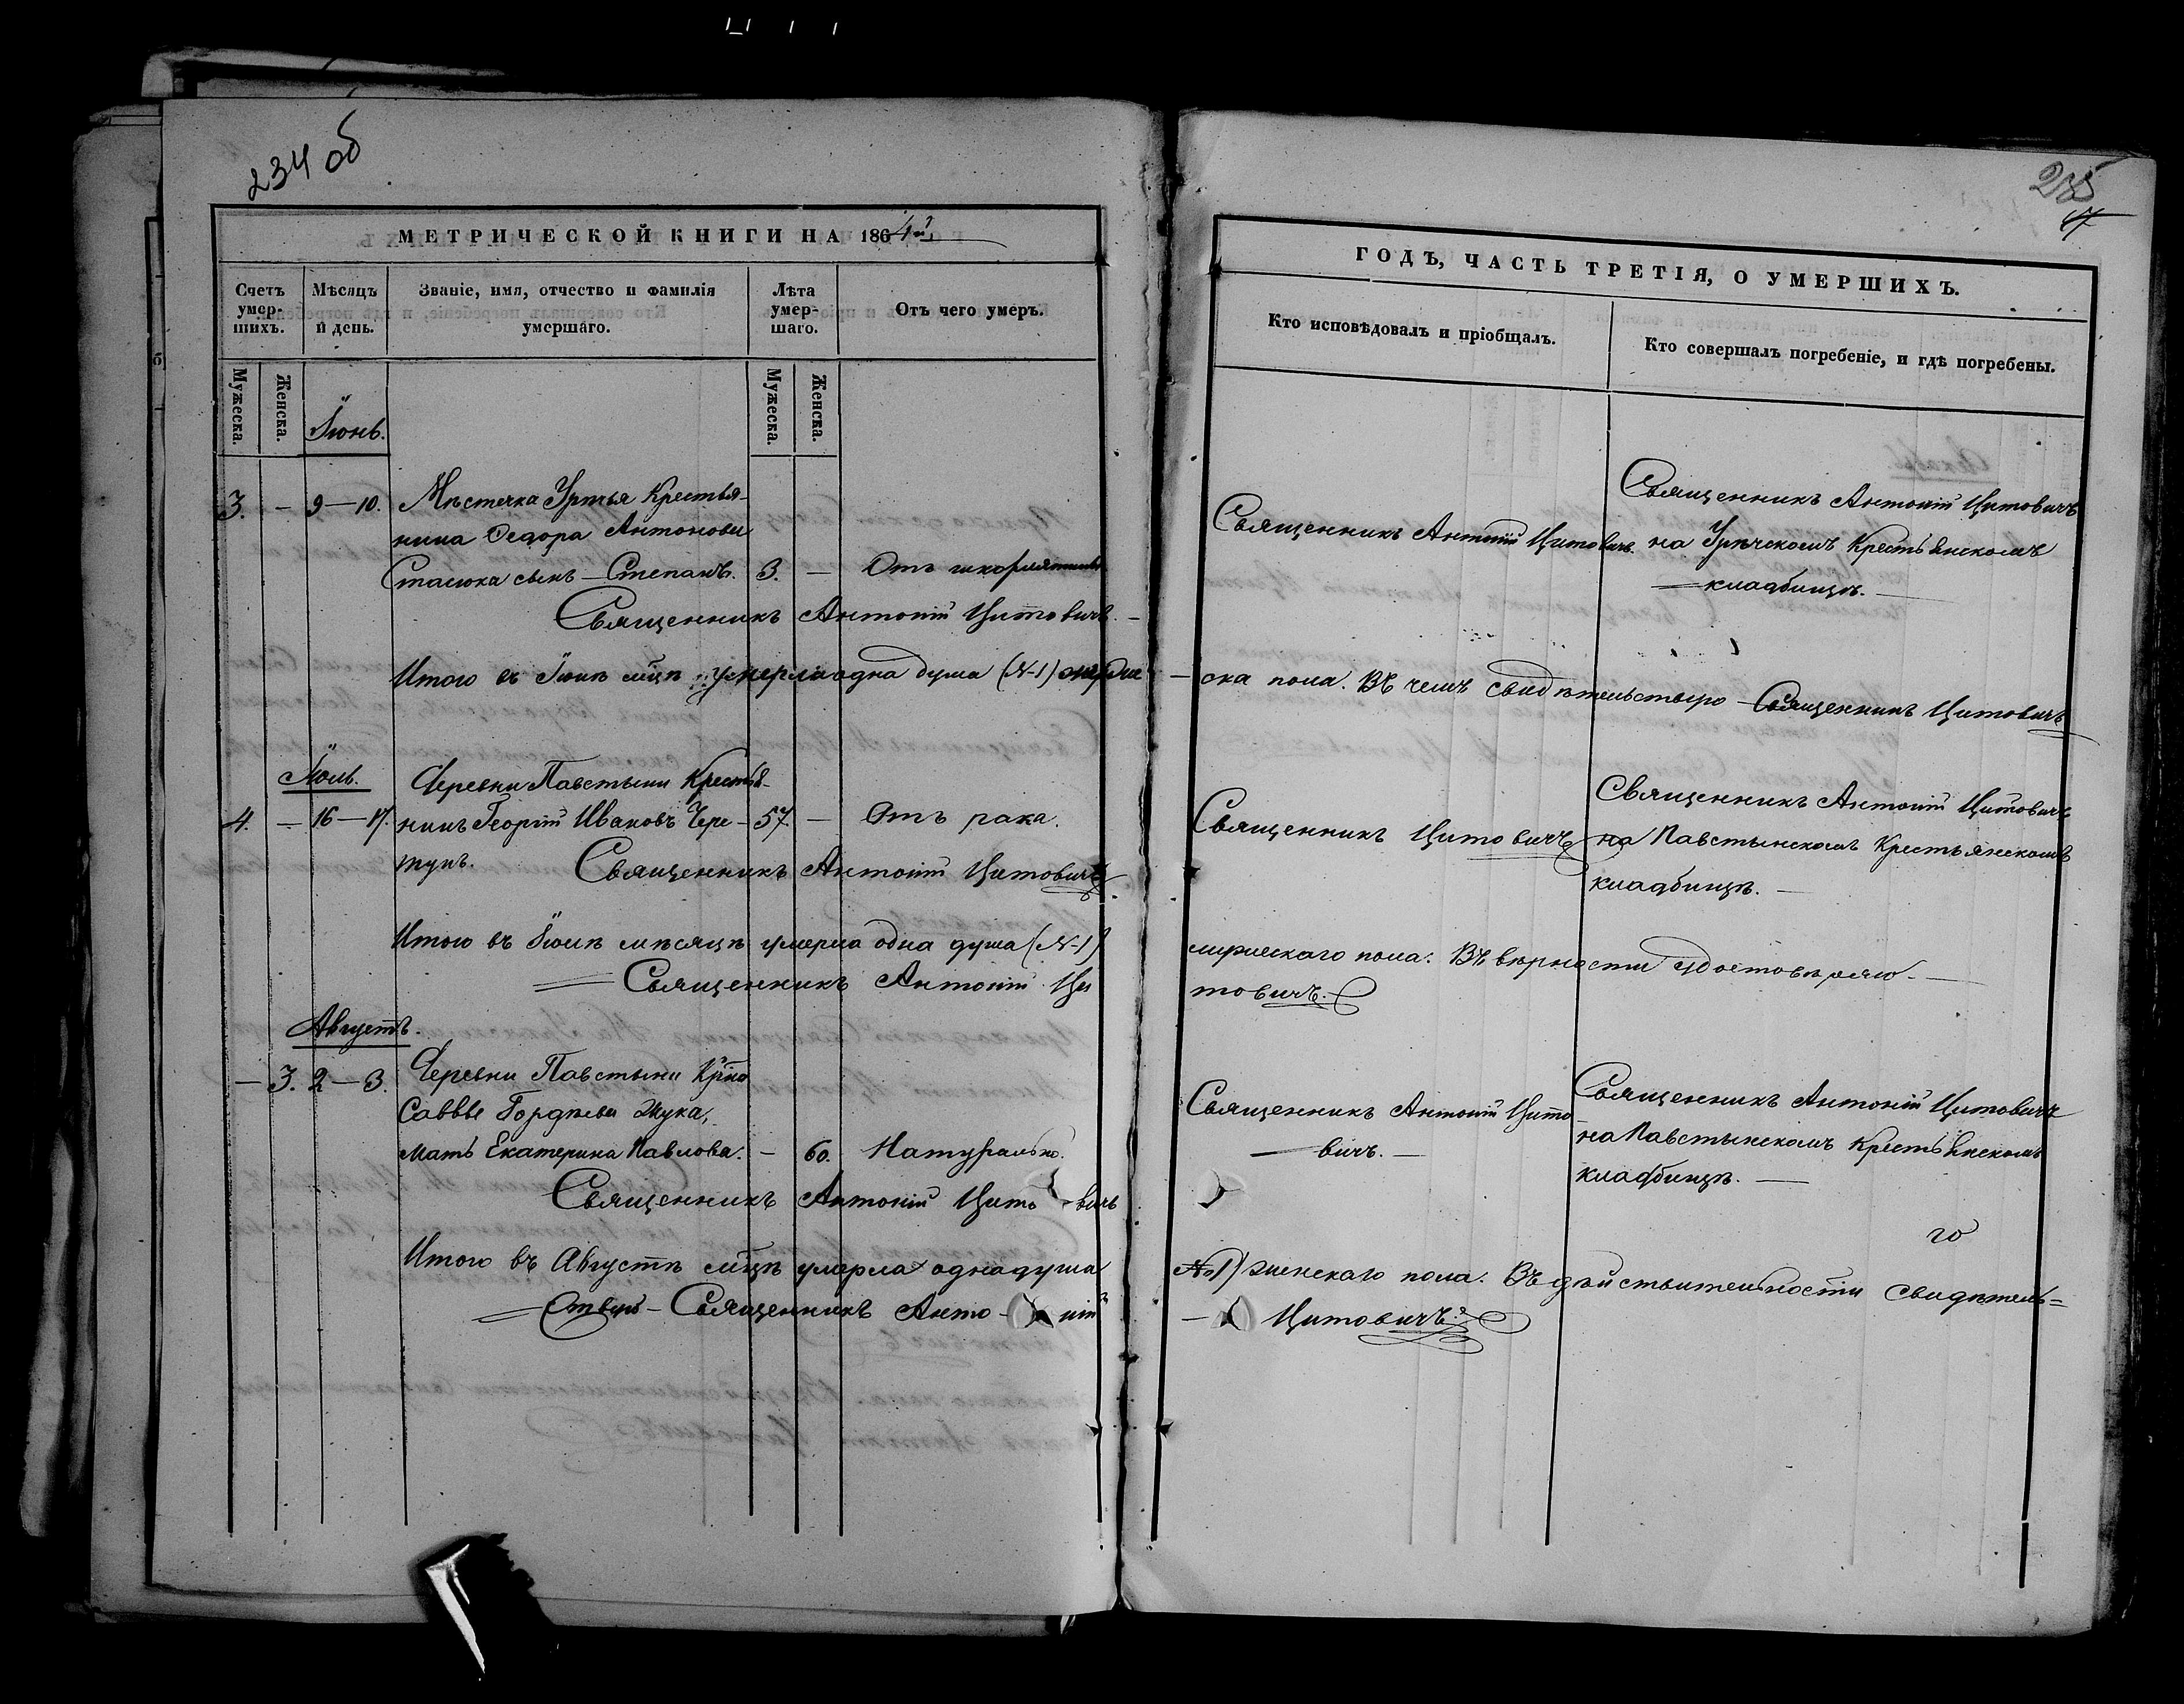 234 об
МЕТРИЧЕСКОЙ КНИГИ НА 1864й
Счетъ умер-шихъ.
Мѣсяцъ и день.
Званіе, имя, отчество и фамилія умершаго.
Лѣта умер-шаго.
Отъ чего умеръ.
Мужеска.
Женска.
Мужеска.
Женска.
Іюнь.
3. — 9—10. Мѣстечка Урѣчья Крестья-
нина Ѳедора Антонова
Стасюка сынъ — Степанъ. 3. — Отъ
Священникъ Антоній Цитовичъ. —
Итого въ Іюнѣ мцѣ умерла одна душа (№1)
Іюль.
Деревни Павстыни Крестья-
4. — 16—17. нинъ Георгій Ивановъ Чере- 57. — Отъ рака.
тунъ. Священникъ Антоній Цитовичъ.
Итого въ Іюлѣ мѣсяцѣ умерла одна душа (№1)
Священникъ Антоній Ци
Августъ.
— 3. 2—3. Деревни Павстыни Крѣнина
Саввы Гордѣева Жука,
мать Екатерина Павлова. — 60. Натурально.
Священникъ Антоній Цито вичъ
Итого въ Августѣ мцѣ умерла одна душа
Священникъ Анто- ній
235
17
ГОДЪ, ЧАСТЬ ТРЕТІЯ, О УМЕРШИХЪ.
Кто исповѣдовалъ и пріобщалъ.
Кто совершалъ погребеніе, и гдѣ погребены.
Священникъ Антоній Цитовичъ.
Священникъ Антоній Цитовичъ
на Урѣчскомъ Крестьянскомъ
кладбищѣ. —
— ска пола. Въ чемъ свидѣтельствую — Священникъ Цитовичъ
Священникъ Цитовичъ
Священникъ Антоній Цитовичъ
на Павстынскомъ Крестьянскомъ
кладбищѣ. —
мужескаго пола. Въ вѣрности удостовѣряю —
товичъ.
Священникъ Антоній Цито
— вичъ. —
Священникъ Антоній Цитовичъ
на Павстынскомъ Крестьянскомъ
кладбищѣ. —
№1) женскаго пола. Въ дѣйствительности свидѣтель=
— Цитовичъ.